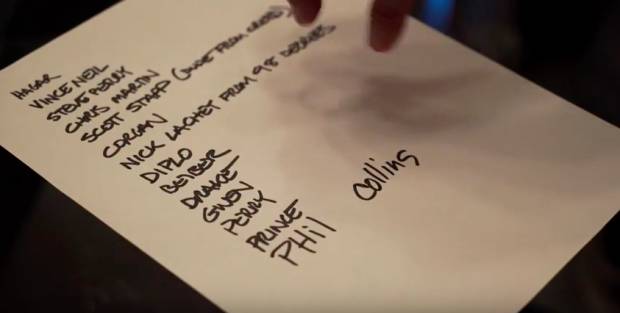 HAGAR
VINCE NEIL
STEVE PERRY
CHRIS MARTIN
SCOTT STAPP (DUDE FROM CREED)
CORGAN
NICK LACHEY FROM 98 DEGREES
DIPLO
BEIBER
DRAKE
GWEN
PERRY
PRINCE
PHil Collins